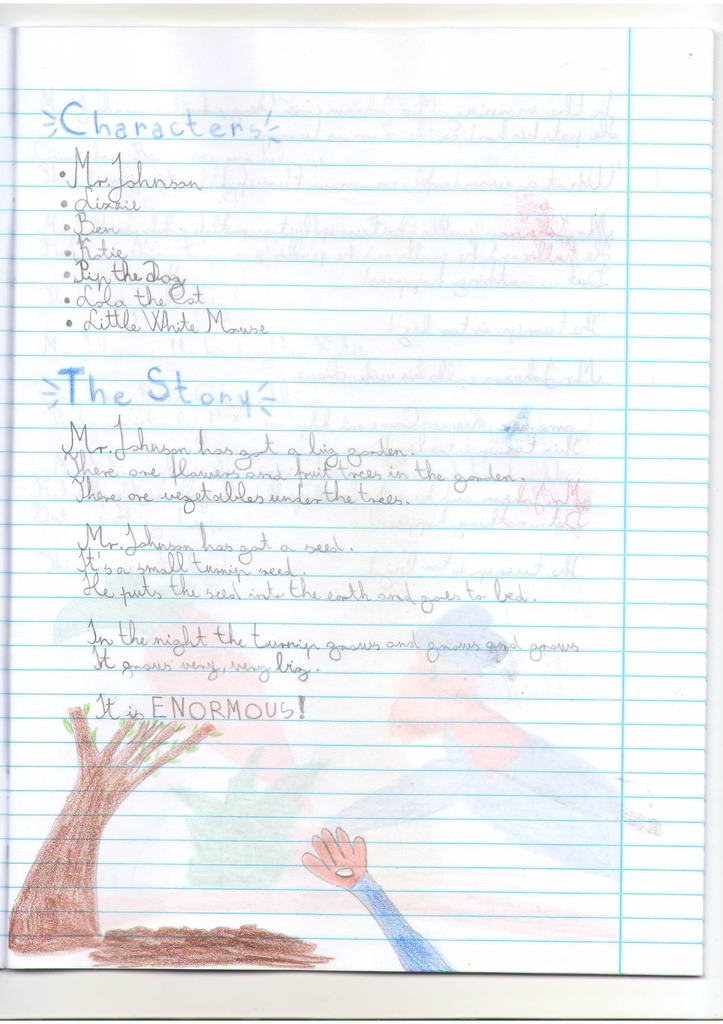 Characters
• Mr. Johnson
• Lizzie
• Ben
• Katie
• Pip the Dog
• Lola the Cat
• Little White Mouse
The Story
Mr. Johnson has got a big garden.
There are flowers and fruit trees in the garden.
There are vegetables under the trees.
Mr. Johnson has got a seed.
It's a small turnip seed.
He puts the seed into the earth and goes to bed.
In the night the turnip grows and grows and grows
It grows very, very big.
It is ENORMOUS!